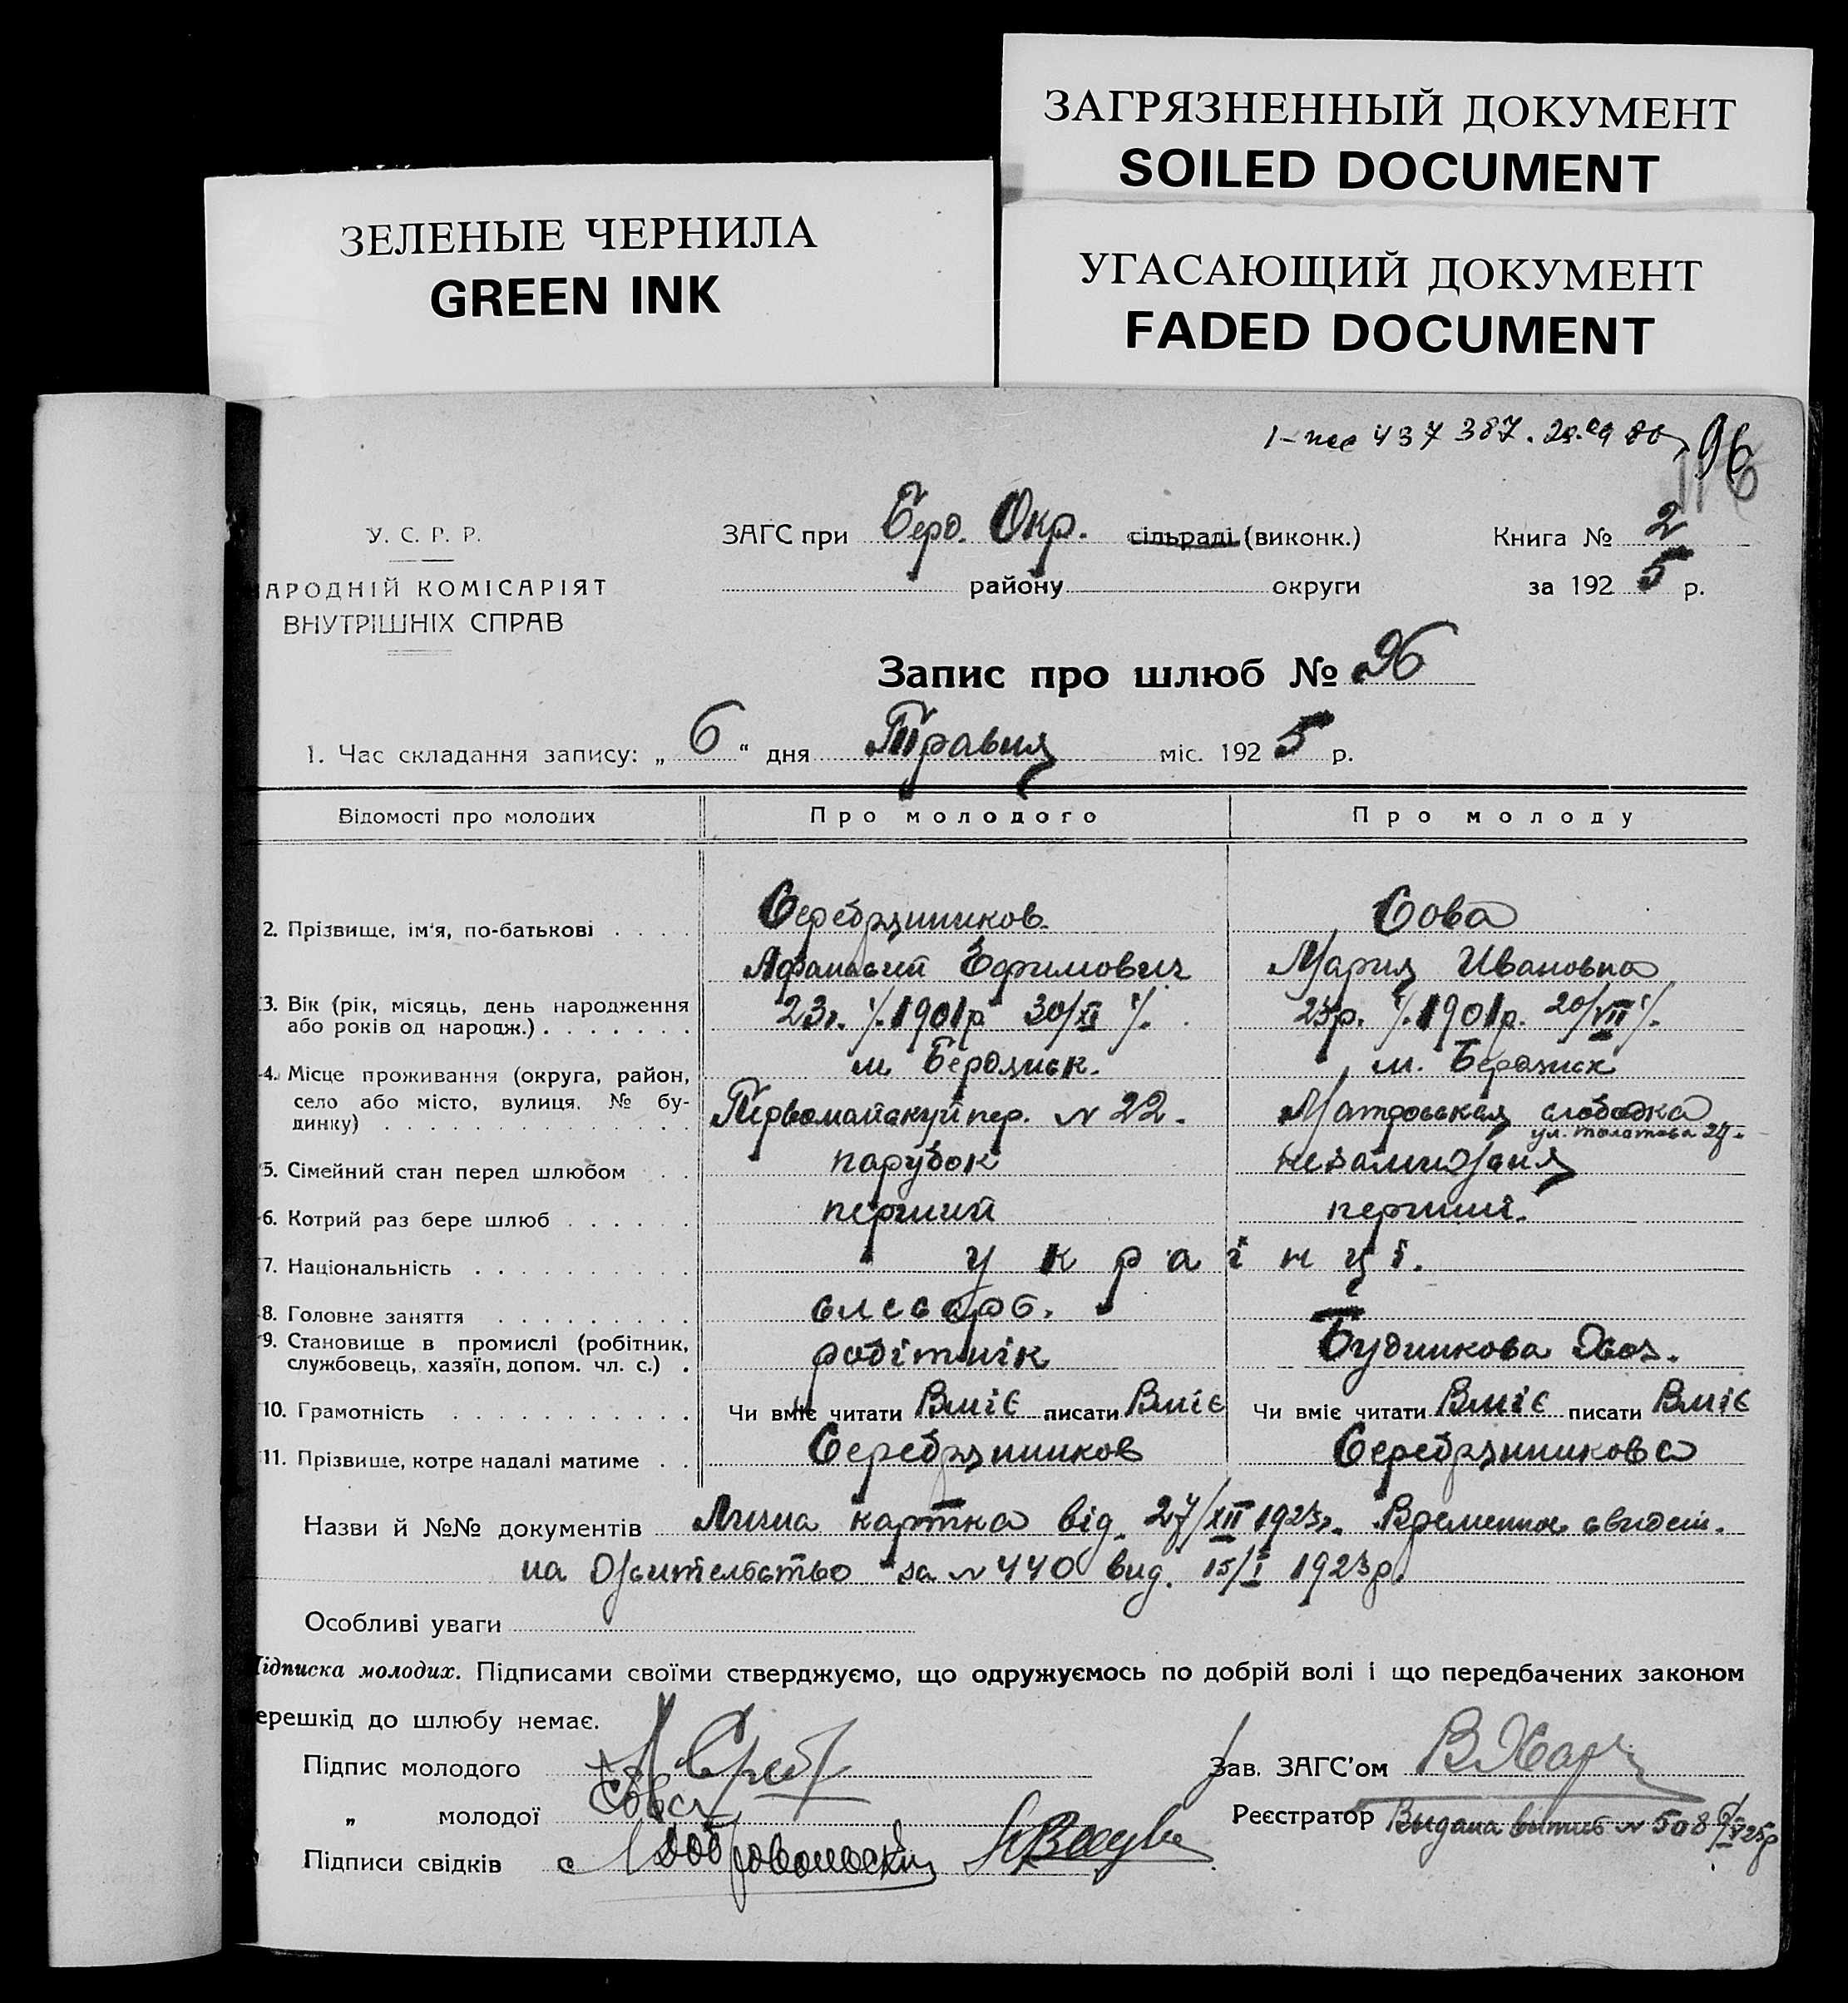 ЗАГРЯЗНЕННЫЙ ДОКУМЕНТ
SOILED DOCUMENT
ЗЕЛЕНЫЕ ЧЕРНИЛА
GREEN INK
УГАСАЮЩИЙ ДОКУМЕНТ
FADED DOCUMENT
437 387.
96
116
У. С. Р. Р.
АРОДНІЙ КОМІСАРІЯТ
ВНУТРІШНІХ СПРАВ
ЗАГС при Берд. Окр. сільраді (виконк.)
району округи
Книга № 2
за 1925 р.
Запис про шлюб № 96
1. Час складання запису: „6“ дня Травня міс. 1925 р.
Відомості про молодих Про молодого Про молоду
2. Прізвище, ім'я, по-батькові Серебрянников Сова
Афанасий Ефимович Мария Ивановна
3. Вік (рік, місяць, день народження 23р. 1901р. 30/XI 23р. 1901р. 20/VII
або років од народж.)
м. Бердянск. м. Бердянск
4. Місце проживання (округа, район,
село або місто, вулиця, № бу- Первомайский пер. № 22. Матросская слободка
динку) ул. 24.
5. Сімейний стан перед шлюбом парубок незаміжня
6. Котрий раз бере шлюб перший перший.
7. Національність українці.
8. Головне заняття слесарь.
9. Становище в промислі (робітник, робітник Будинкова Хоз.
службовець, хазяїн, допом. чл. с.)
10. Грамотність Чи вміє читати Вміє писати Вміє Чи вміє читати Вміє писати Вміє
11. Прізвище, котре надалі матиме Серебрянников Серебрянникова
Назви й №№ документів Лична картка від. 27/XII 1923р. Временное свидет.
на жительство за № 440 вид. 15/I 1923р.
Особливі уваги
Підписка молодих. Підписами своїми стверджуємо, що одружуємось по добрій волі і що передбачених законом
ерешкід до шлюбу немає.
Підпис молодого
Зав. ЗАГС'ом
„ молодої Сова
Реєстратор Видана витяг № 508
Підписи свідків Добровольский